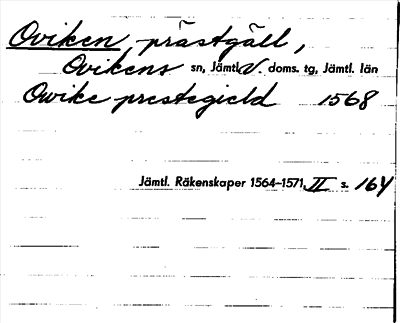 Oviken, prästgäll,
Ovikens sn, Jämtl. V. doms. tg, Jämtl. län
Owike prestegield 1568
Jämtl. Räkenskaper 1564-1571, II s. 164